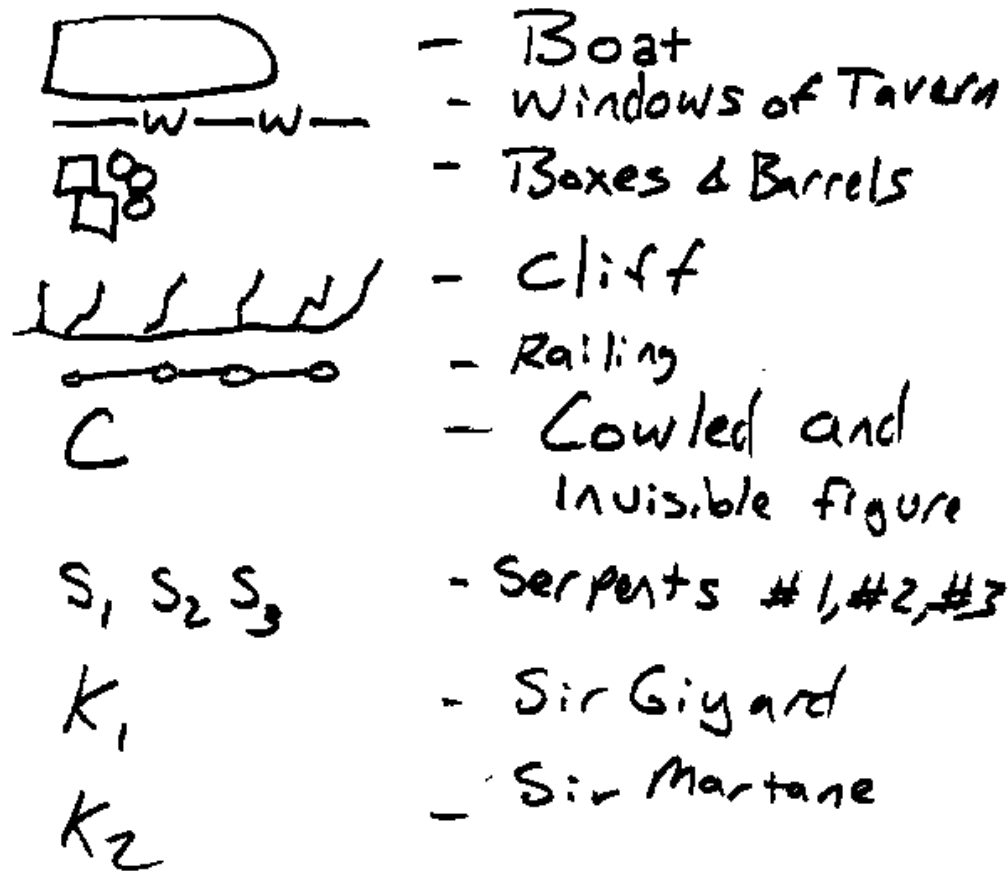 - Boat
—W—W— - Windows of Tavern
- Boxes & Barrels
- Cliff
- Railing
C - Cowled and
Invisible figure
S1 S2 S3 - Serpents #1, #2, #3
K1 - Sir Giyard
K2 - Sir Martane